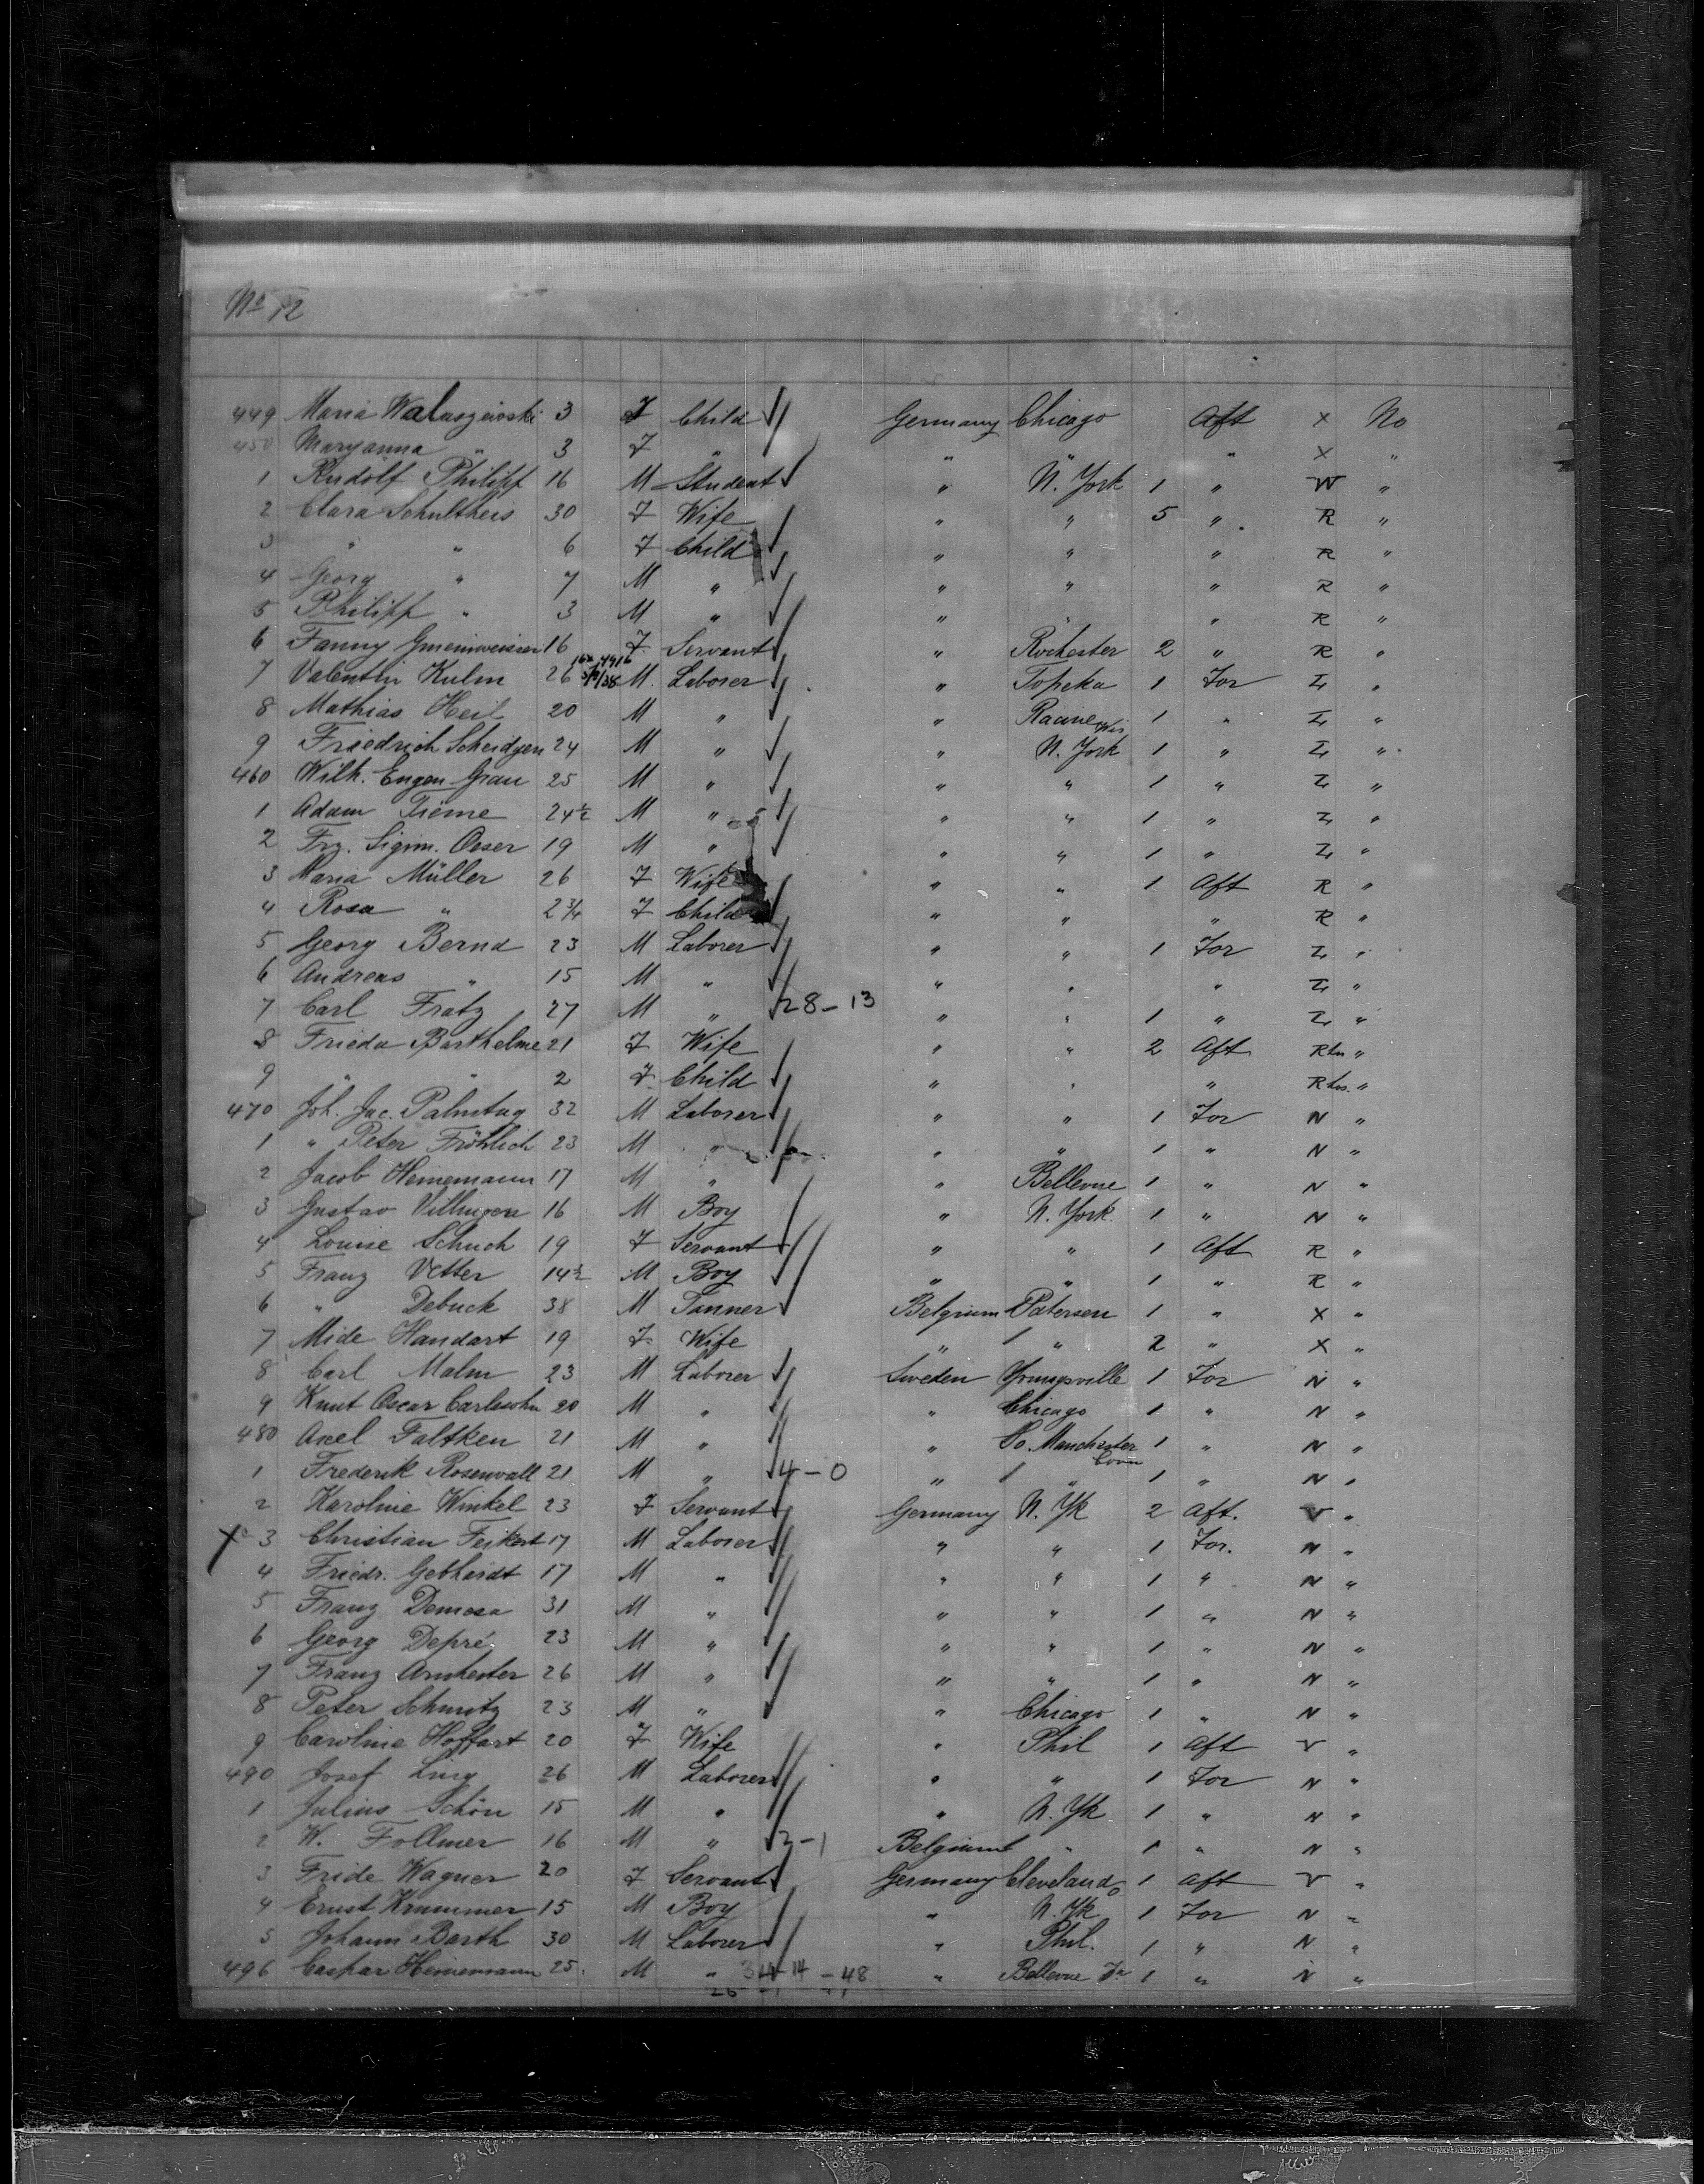 No 12
449 Maria Walaszewski 3 F Child Germany Chicago Aft X No
450 Maryanna " 3 F " " " " X "
1 Rudolf Philipp 16 M Student " N. York 1 " W "
2 Clara Schultheis 30 F Wife " " 5 " R "
3 " " 6 F Child " " " R "
4 Georg " 7 M " " " " R "
5 Philipp " 3 M " " " " R "
6 Fanny Gmeinweiser 16 F Servant " Rochester 2 " R "
7 Valentin Kulm 26 M. Laborer " Topeka 1 For Z "
8 Mathias Heil 20 M " " Racine Wis 1 " Z "
9 Friedrich Scheidgen 24 M " " N. York 1 " Z "
460 Wilh. Eugen Grau 25 M " " " 1 " Z "
1 Adam Tieme 24½ M " " " 1 " Z "
2 Frz. Sigm. Osser 19 M " " " 1 " Z "
3 Maria Müller 26 F Wife " " 1 Aft R "
4 Rosa " 2¾ F Child " " " R "
5 Georg Bernd 23 M Laborer " " 1 For Z "
6 Andreas " 15 M " " " " Z "
7 Carl Fratz 27 M " 28-13 " " 1 " Z "
8 Frieda Barthelme 21 F Wife " " 2 Aft "
9 " " 2 F Child " " " "
470 Joh. Jac. Palmtag 32 M Laborer " " 1 For N "
1 " Peter Fröhlich 23 M " " " 1 " N "
2 Jacob Heinemann 17 M " " Bellevue 1 " N "
3 Gustav Villinger 16 M Boy " N. York. 1 " N "
4 Louise Schuch 19 F Servant " " 1 Aft R "
5 Franz Vetter 14½ M Boy " " 1 " R "
6 " Debuck 38 M Tanner Belgium Patersen 1 " X "
7 Mide Handart 19 F Wife " " 2 " X "
8 Carl Malm 23 M Laborer Sweden Youngsville 1 For N "
9 Knut Oscar Carlssohn 20 M " " Chicago 1 " N "
480 Axel Faltken 21 M " " So. Manchester Conn 1 " N "
1 Frederik Rosenvall 21 M " 4-0 " " 1 " N "
2 Karoline Winkel 23 F Servant Germany N. Yk 2 Aft. V "
X 3 Christian Feikert 17 M Laborer " " 1 For. N "
4 Friedr. Gebhardt 17 M " " " 1 " N "
5 Franz Demesa 31 M " " " 1 " N "
6 Georg Depré 23 M " " " 1 " N "
7 Franz Armhester 26 M " " " 1 " N "
8 Peter Schmitz 23 M " " Chicago 1 " N "
9 Caroline Hoffart 20 F Wife " Phil 1 Aft V "
490 Josef Ling 26 M Laborer " " 1 For N "
1 Julius Schön 15 M " " N. Yk 1 " N "
2 W. Follmer 16 M " 2-1 Belgium " 1 " N "
3 Fride Wagner 20 F Servant Germany Cleveland O 1 Aft V "
4 Ernst Krummer 15 M Boy " N. Yk 1 For N "
5 Johann Barth 30 M Laborer " Phil. 1 " N "
496 Caspar Heinemann 25. M " 34-14-48 " Bellevue 1 " N "